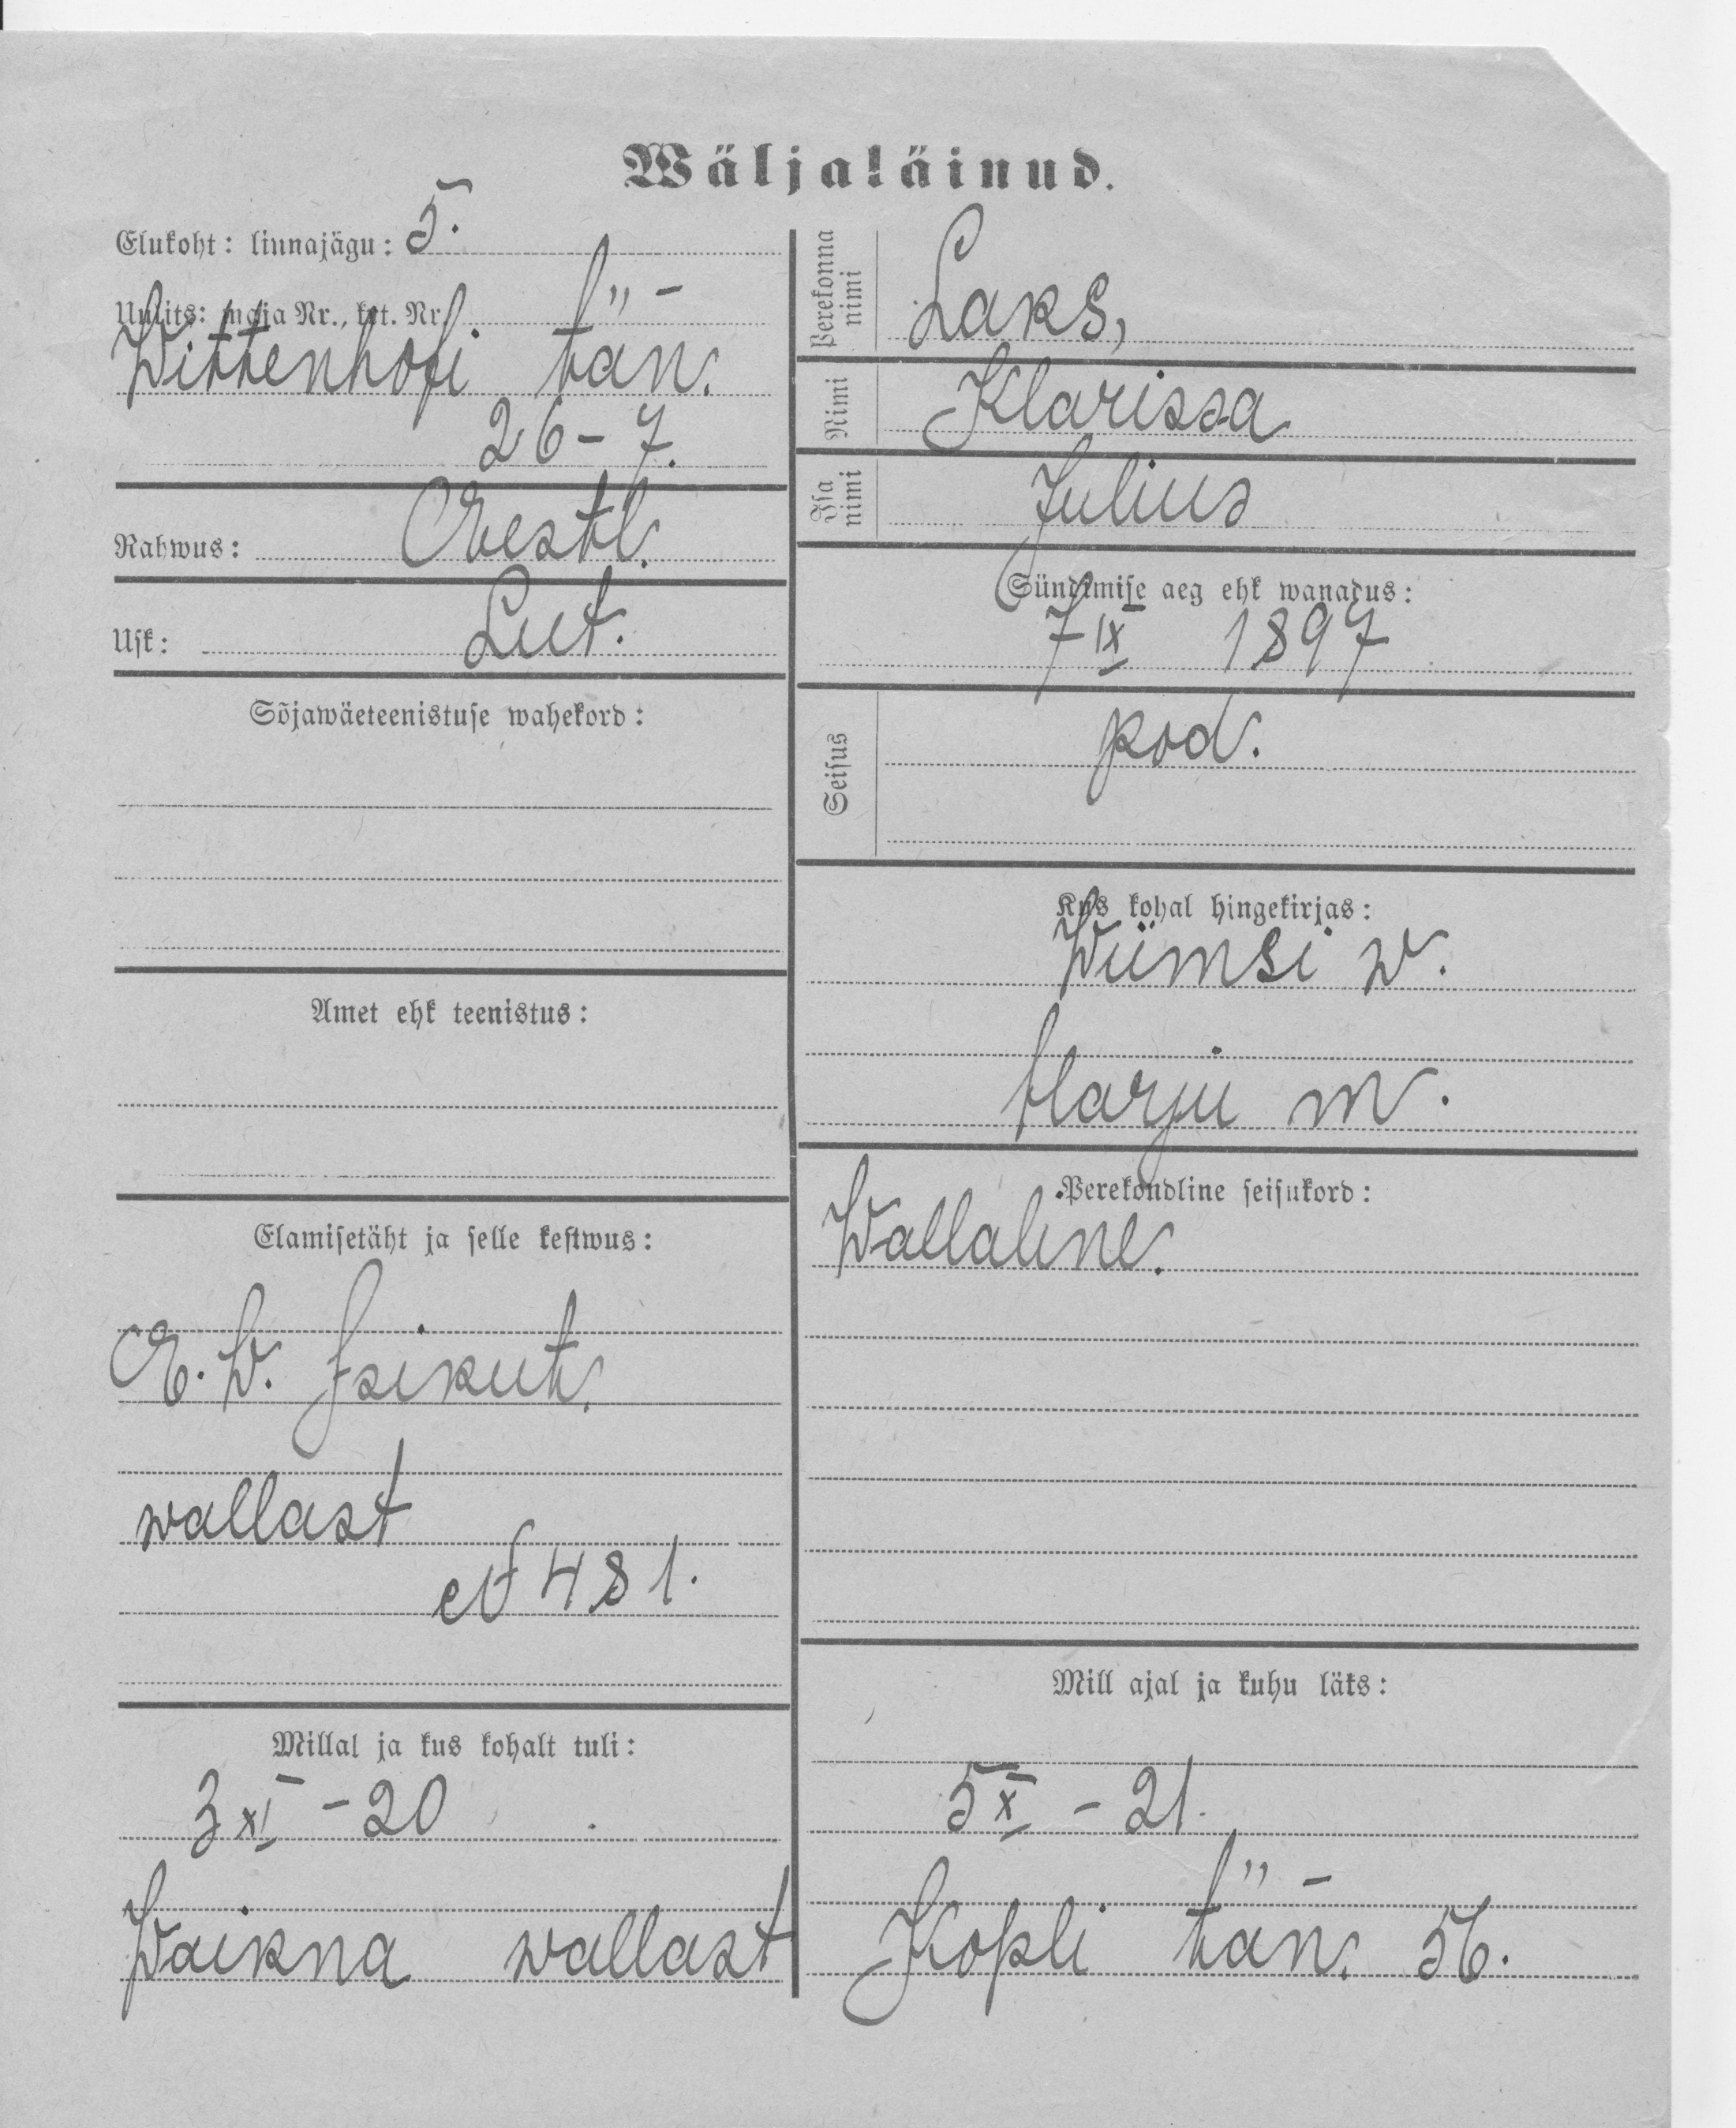 Wäljaläinud.
Elukoht: linnajägu: 5.
Uulits: maja Nr., krt. Nr.
Wittenhofi tän.
26-7.
Rahwus: Eestl.
Usk: Lut.
Sõjawäeteenistuse wahekord:
Amet ehk teenistus:
Elamisetäht ja selle kestwus:
E. W. Isikut.
wallast
№ 481.
Millal ja kus kohalt tuli:
3 XI - 20
Waikna wallast
Perekonna nimi Laks,
Nimi Klarissa
Isa nimi Julius
Sündimise aeg ehk wanadus:
7 IX 1897
Seisus kod.
Kus kohal hingekirjas:
Wiimsi w.
Harju m.
Perekondline seisukord:
Wallaline.
Mill ajal ja kuhu läks:
5 X - 21.
Kopli tän. 56.